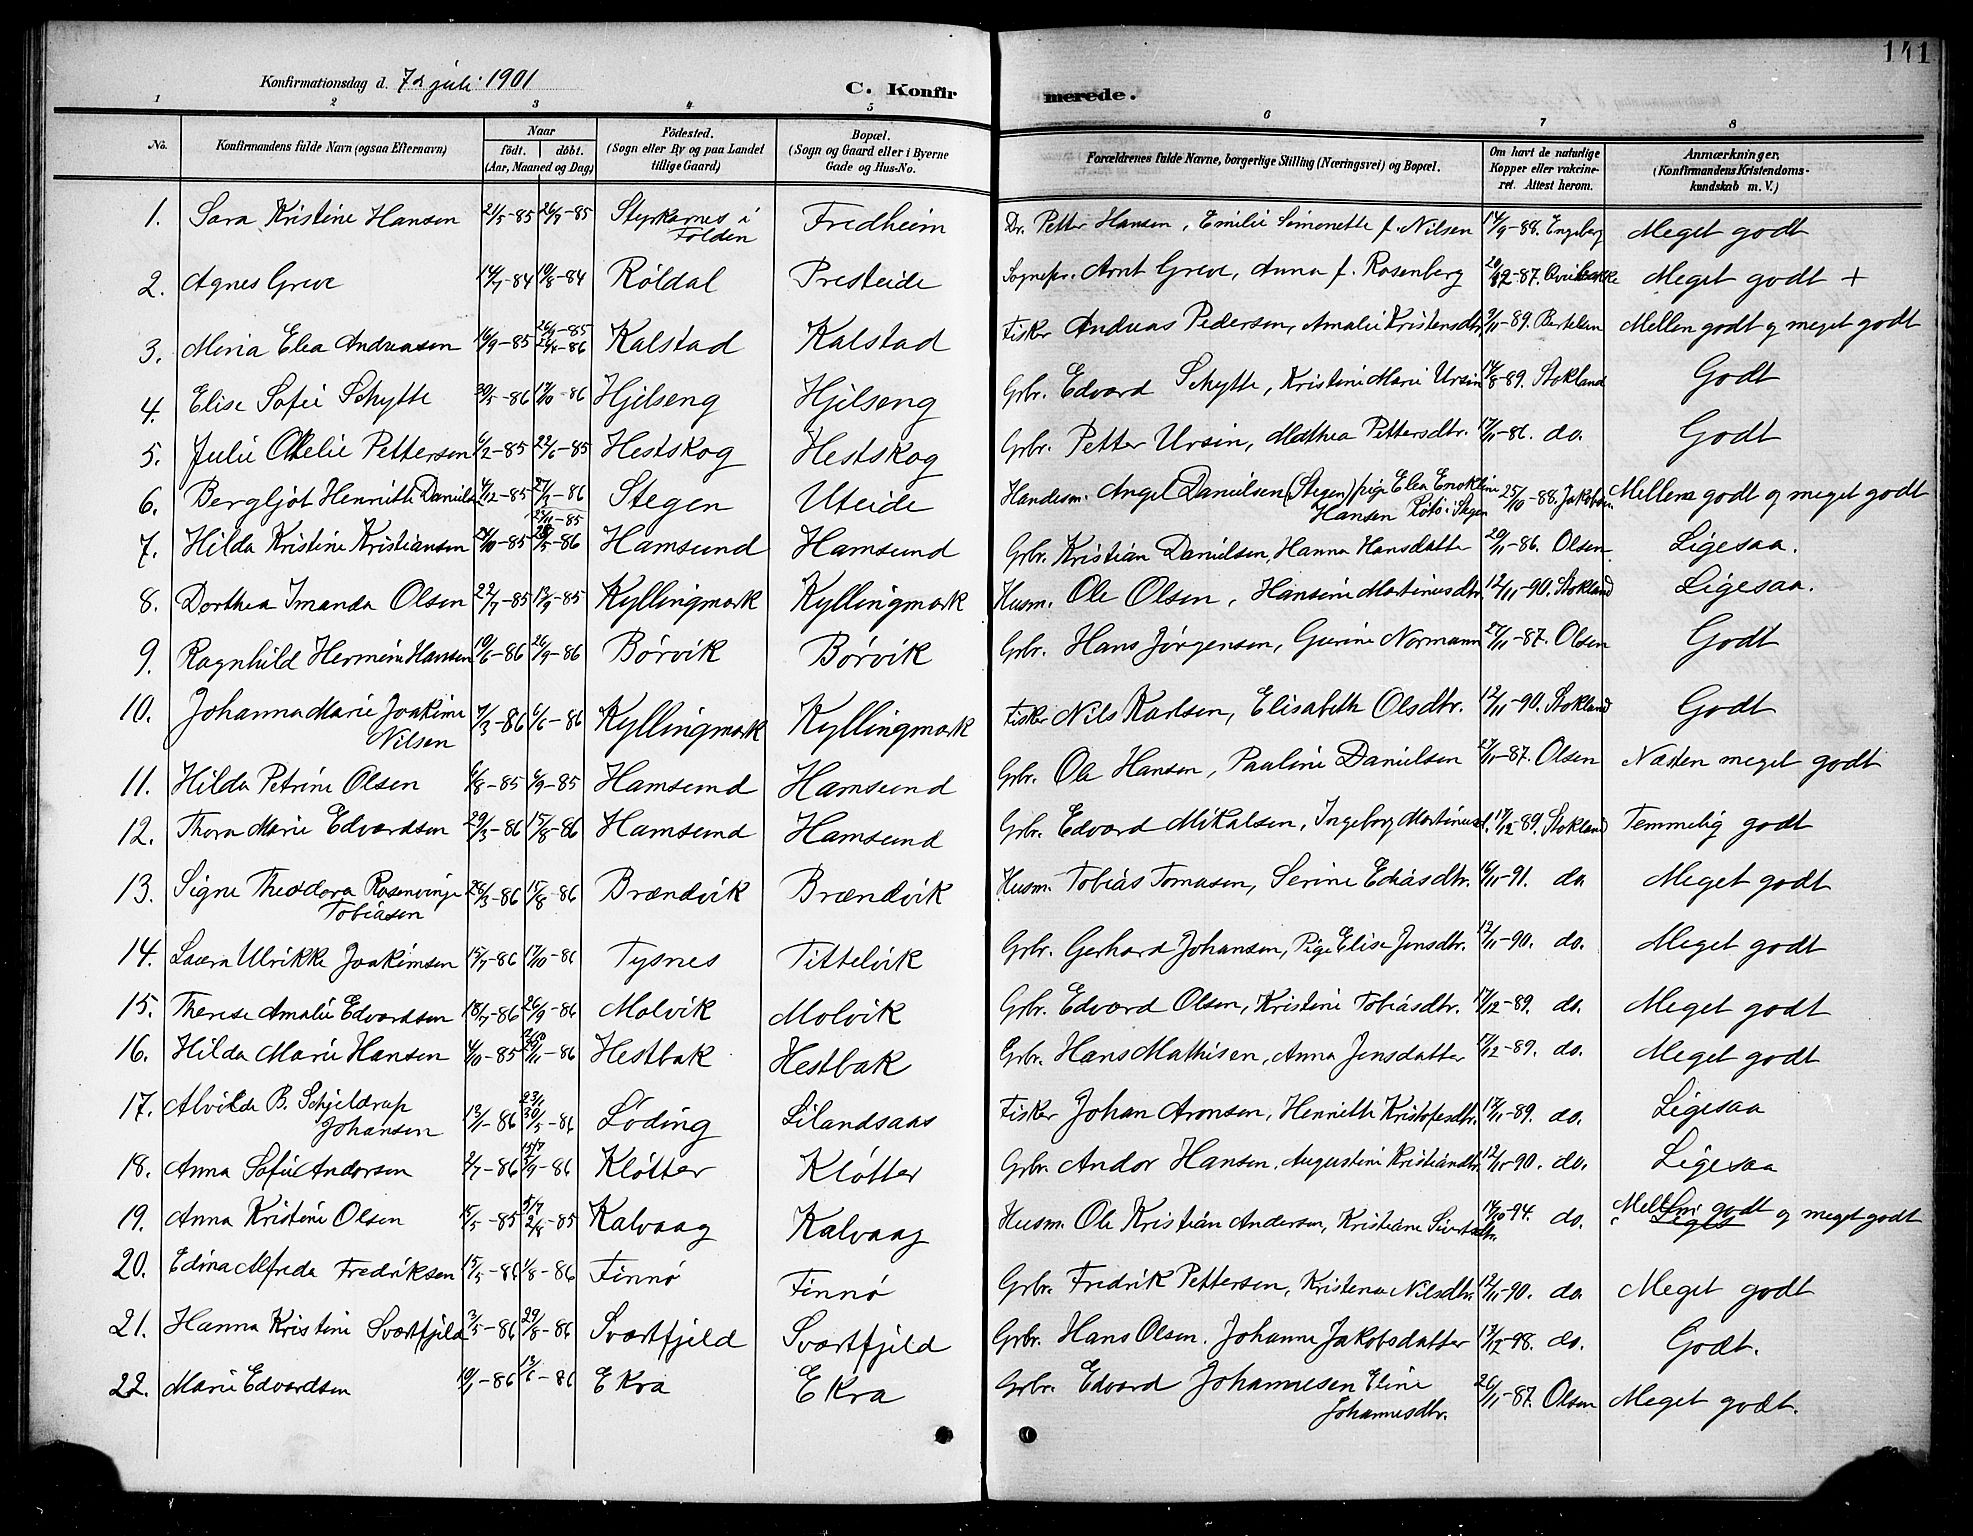 141
Konfirmationsdag d. 7de juli 1901
C. Konfirmerede.
1 2 3 4 5 6 7 8
No. | Konfirmandens fulde Navn (ogsaa Efternavn) | Naar födt. döbt. (Aar, Maaned og Dag) | Födested. (Sogn eller By og paa Landet tillige Gaard) | Bopæl. (Sogn og Gaard eller i Byerne Gade og Hus-No. | Forældrenes fulde Navne, borgerlige Stilling (Næringsvei) og Bopæl. | Om havt de naturlige Kopper eller vakcineret. Attest herom. | Anmærkninger. (Konfirmandens Kristendomskundskab m. V.)
1. Sara Kristine Hansen 21/5-85 26/8-85 Styrkesnes i Folden Fredheim Dr. Petter Hansen, Emilie Simonette f. Nilsen 14/9-88. Engeberg Meget godt
2. Agnes Greve 14/7-84 10/8-84 Røldal Presteide Sognepr. Arnt Greve, Anna f. Rosenberg 20/12-87. Meget godt +
3. Maria Elea Andreasen 16/9-85 26/9-85 26/4-86 Kalstad Kalstad Fisker Andreas Pedersen, Amalie Kristensdtr. 9/11-89. Bertelsen Mellem godt og meget godt
4. Elise Sofie Schytte 30/5-86 17/10-86 Hjilseng Hjilseng Grbr. Edvard Schytte, Kristine Marie Ursin 14/8-89. Stokland Godt
5. Julie Otelie Pettersen 6/2-85 22/6-85 Hestskog Hestskog Grbr. Petter Ursin, Mathea Pettersdtr. 17/11-86. do. Godt
6. Bergljot Henritte Daniels 4/12-85 27/2-86 Stegen Uteide Handesm. Angel Danielsen (Stegen) pige Elea Enokline Hansen Røtø i Stegen 25/10-88. Jakobsen Mellem godt og meget godt
7. Hilda Kristine Kristiansen 24/10-85 22/11-85 28/5-86 Hamsund Hamsund Grbr. Kristian Danielsen, Hanna Hansdatter 29/11-86. Olsen Ligesaa.
8. Dorthea Imanda Olsen 22/7-85 13/9-85 Kyllingmark Kyllingmark Husm. Ole Olsen, Hansine Martinusdtr. 12/11-90. Stokland Ligesaa.
9. Ragnhild Hermine Hansen 10/6-86 26/9-86 Børvik Børvik Grbr. Hans Jørgensen, Gurine Normann 27/11-87. Olsen Godt
10. Johanna Marie Joakime Nilsen 7/3-86 6/6-86 Kyllingmark Kyllingmark Fisker Nils Karlsen, Elisabeth Olsdtr. 12/11-90. Stokland Godt
11. Hilda Petrine Olsen 6/8-85 6/9-85 Hamsund Hamsund Grbr. Ole Hansen, Pauline Danielsen 27/11-87. Olsen Næsten meget godt
12. Thora Marie Edvardsen 29/3-86 15/8-86 Hamsund Hamsund Grbr. Edvard Mikalsen, Ingeborg Martinusd. 17/12-89. Stokland Temmelig godt
13. Signe Theodora Rosenvinge Tobiasen 28/3-86 15/8-86 Brændvik Brændvik Husm. Tobias Tomasen, Serine Ediasdtr. 16/11-91. do. Meget godt
14. Laura Ulrikke Joakimsen 15/7-86 17/10-86 Tysnes Tittelvik Grbr. Gerhard Johansen, Pige Elise Jensdtr. 12/11-90. do. Meget godt
15. Therese Amalie Edvardsen 18/7-86 26/9-86 Molvik Molvik Grbr. Edvard Olsen, Kristine Tobiasdtr. 17/12-89. do. Meget godt
16. Hilda Marie Hansen 4/10-85 -86 Hestbak Hestbak Grbr. Hans Mathisen, Anna Jensdatter 17/12-89. do. Meget godt
17. Alvilde B. Schjeldrup Johansen 13/1-86 23/1 30/5-86 Løding Lilandsaas Fisker Johan Aronsen, Henriette Kristofersdtr. 17/11-89. do. Ligesaa
18. Anna Sofie Andorsen 2/7-86 15/7 5/9-86 Kløtter Kløtter Grbr. Andor Hansen, Augustine Kristiandtr. 12/11-90. do. Ligesaa
19. Anna Kristine Olsen 15/5-85 5/7 2/8-85 Kalvaag Kalvaag Husm. Ole Kristian Andersen, Kristiane Sivertsdtr. 14/10-94. do. Mellem godt og meget godt
20. Edina Alfrida Fredriksen 15/5-86 1/8-86 Finnø Finnø Grbr. Fredrik Pettersen, Kristena Nilsdtr. 12/11-90. do. Meget godt
21. Hanna Kristine Svartfjeld 3/5-86 29/8-86 Svartfjeld Svartfjeld Grbr. Hans Olsen. Johanne Jakobsdatter 17/12-98. do. Godt.
22. Marie Edvardsen 19/1-86 13/6-86 Ekra Ekra Grbr. Edvard Johannesen Eline Johannesdtr. 26/11-87. Olsen Meget godt.